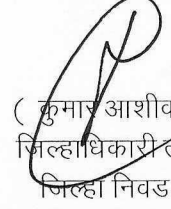 ( कुमार आशीर्व
जिल्हाधिकारी त
जिल्हा निवड